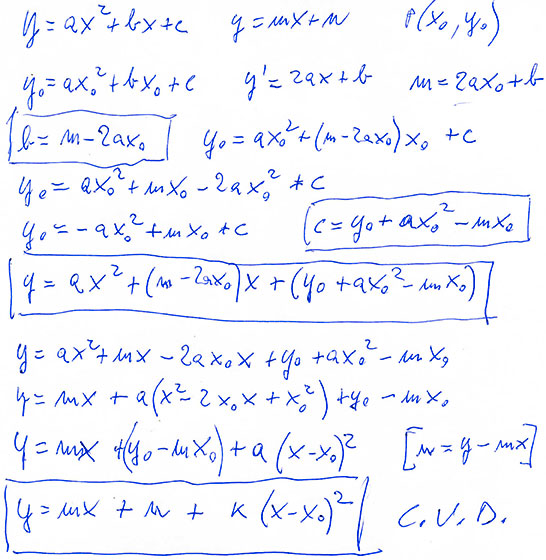 y = ax² + bx + c y = mx + n P(x₀, y₀)
y₀ = ax₀² + bx₀ + c y' = 2ax + b m = 2ax₀ + b
b = m - 2ax₀ y₀ = ax₀² + (m - 2ax₀) x₀ + c
y₀ = ax₀² + mx₀ - 2ax₀² + c
y₀ = -ax₀² + mx₀ + c c = y₀ + ax₀² - mx₀
y = ax² + (m - 2ax₀) x + (y₀ + ax₀² - mx₀)
y = ax² + mx - 2ax₀x + y₀ + ax₀² - mx₀
y = mx + a(x² - 2x₀x + x₀²) + y₀ - mx₀
y = mx + (y₀ - mx₀) + a (x - x₀)² [n = y - mx]
y = mx + n + K (x - x₀)² C.V.D.